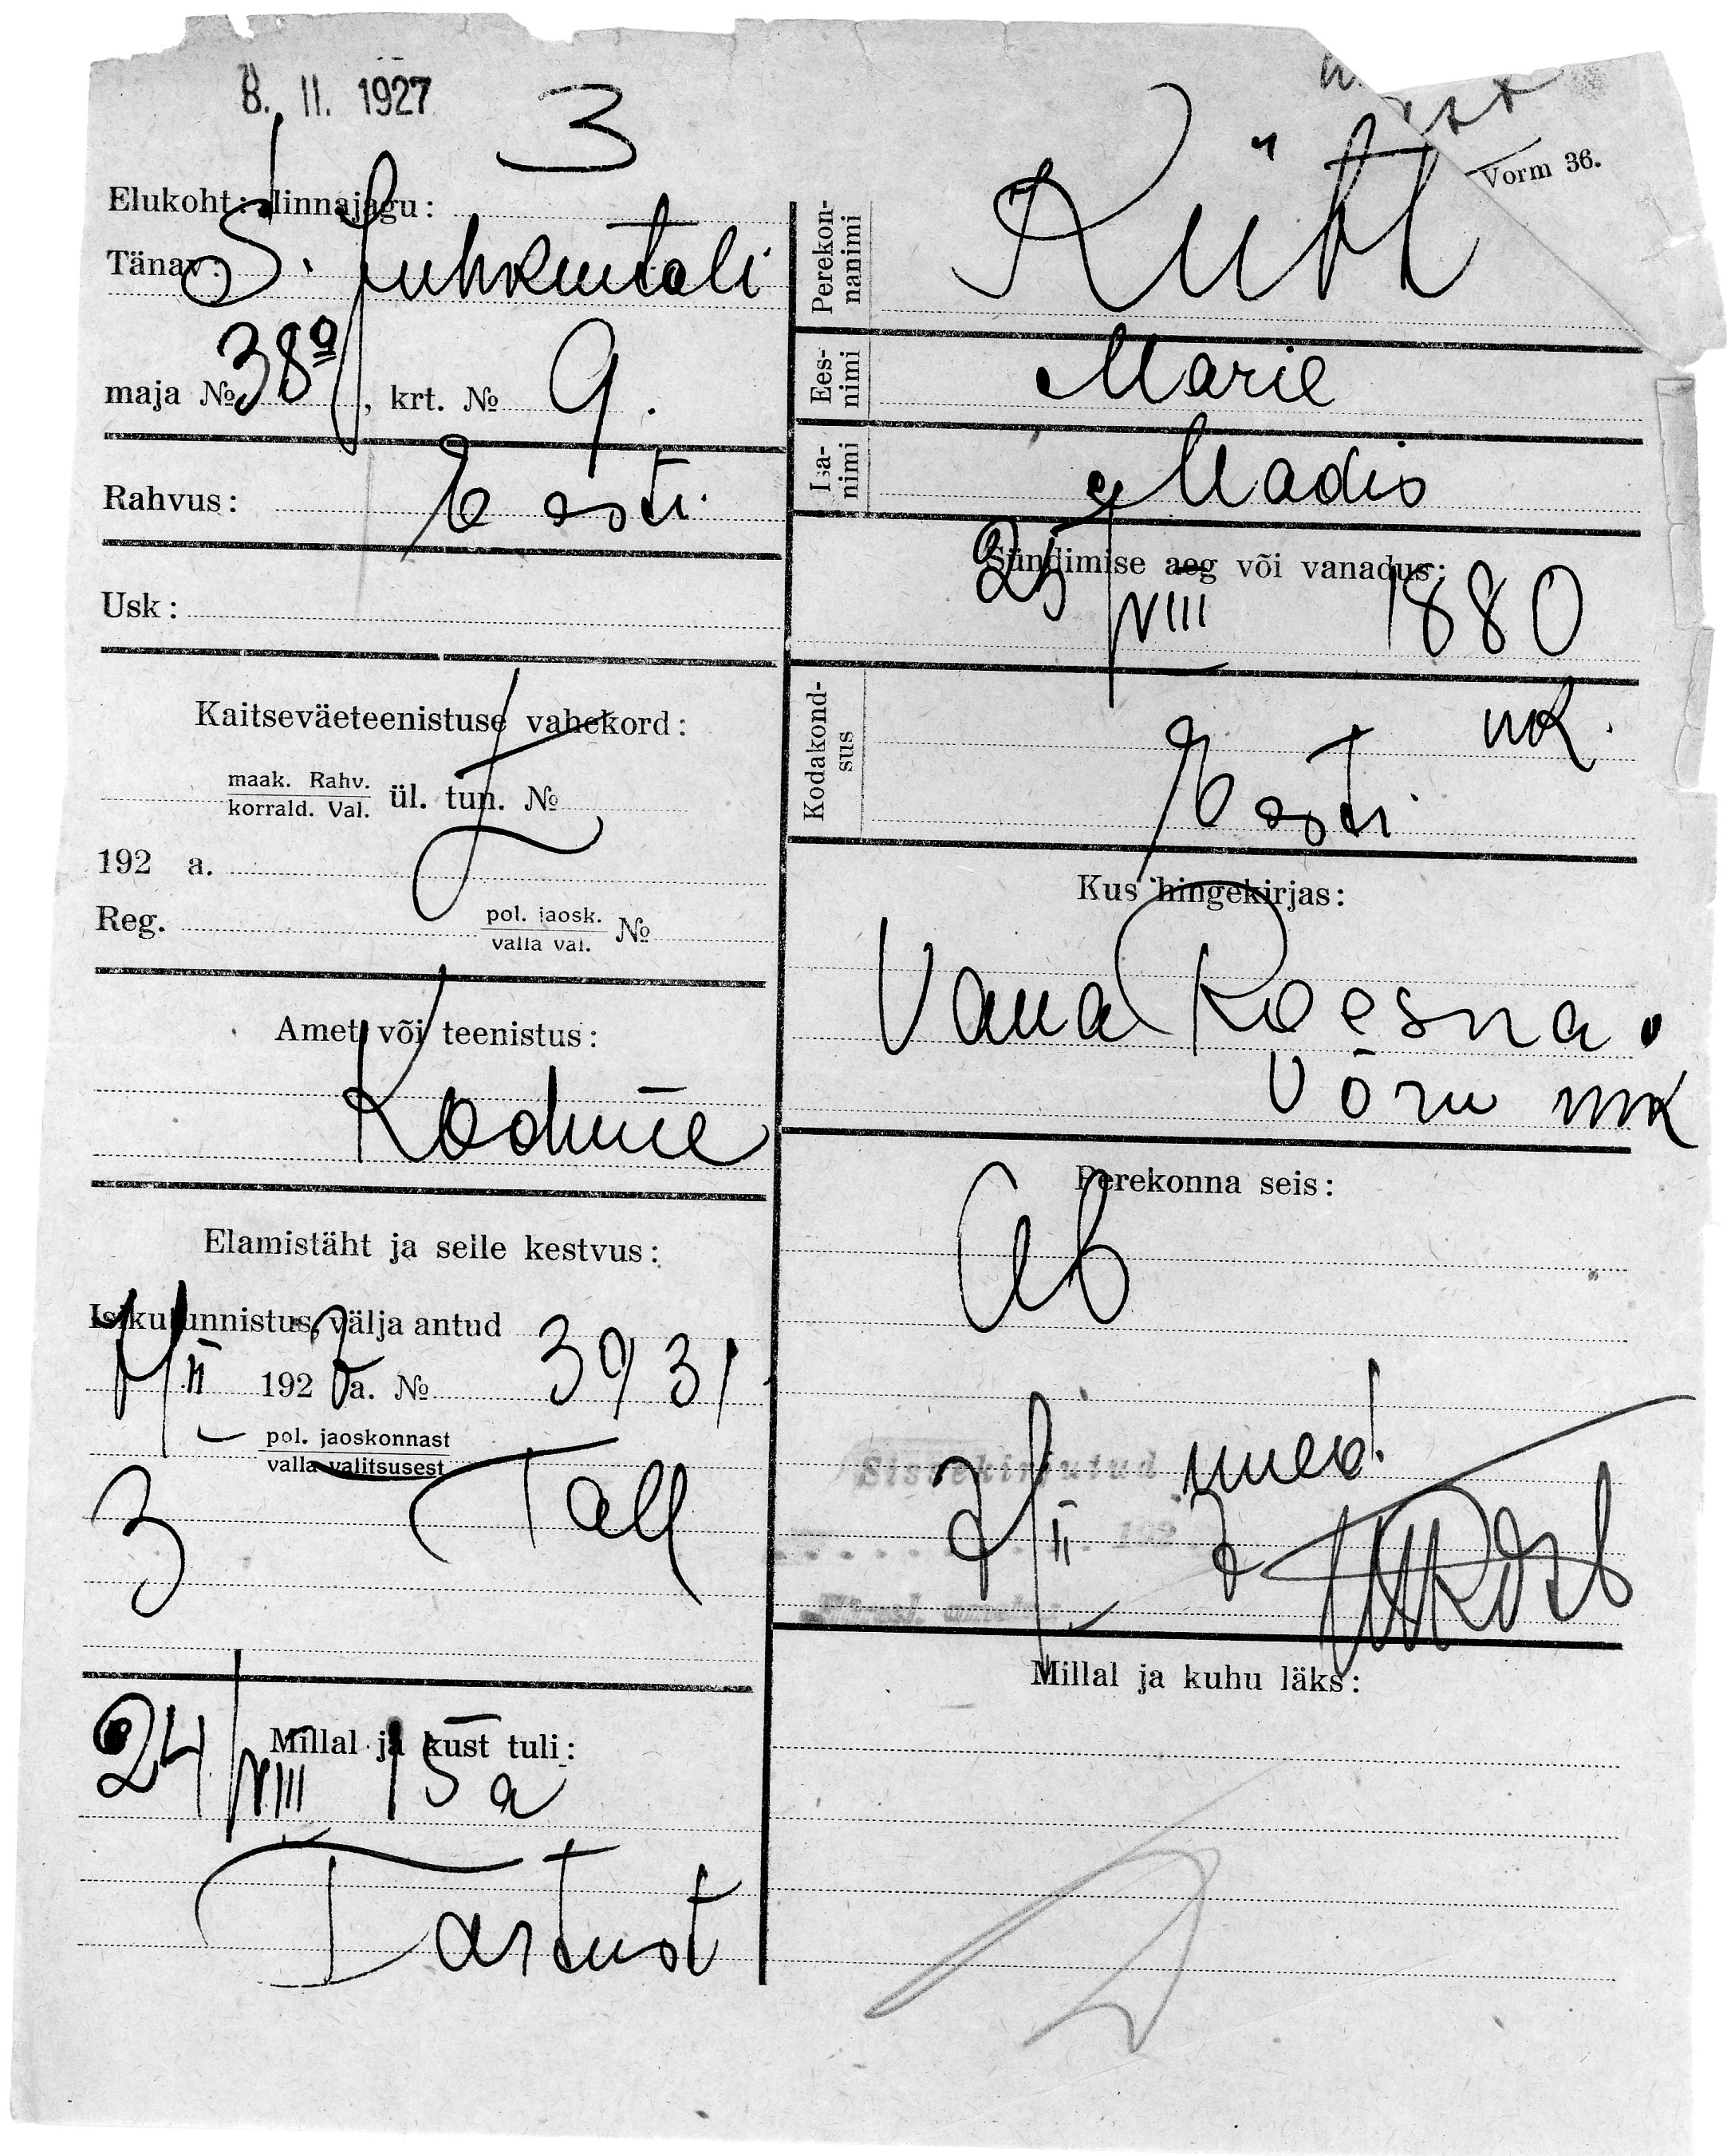 8. II. 1927
3
Vorm 36.
Elukoht: linnajagu:
Tänav: S. Juhkentali
maja № 38a, krt. № 9.
Rahvus: Eesti
Usk:
Kaitseväeteenistuse vahekord:
maak. Rahv.
korrald. Val. ül. tun. №
192 a.
Reg. pol. jaosk.
valla val. №
Amet või teenistus:
Kodune
Elamistäht ja selle kestvus:
Isikutunnistus, välja antud
II 1927 a. № 3931
pol. jaoskonnast
valla valitsusest
3 Tall
Millal ja kust tuli:
24/VIII 15 a
Tartust
Perekon-
nanimi
Kütt
Ees-
nimi
Marie
Isa-
nimi
Madis
Sündimise aeg või vanadus:
25/VIII 1880
Kodakond-
sus
Eesti
Kus hingekirjas:
Vana Koesna.
Võru mk
Perekonna seis:
Ab
Sissekirjutud
7/II 7
192
Millal ja kuhu läks: